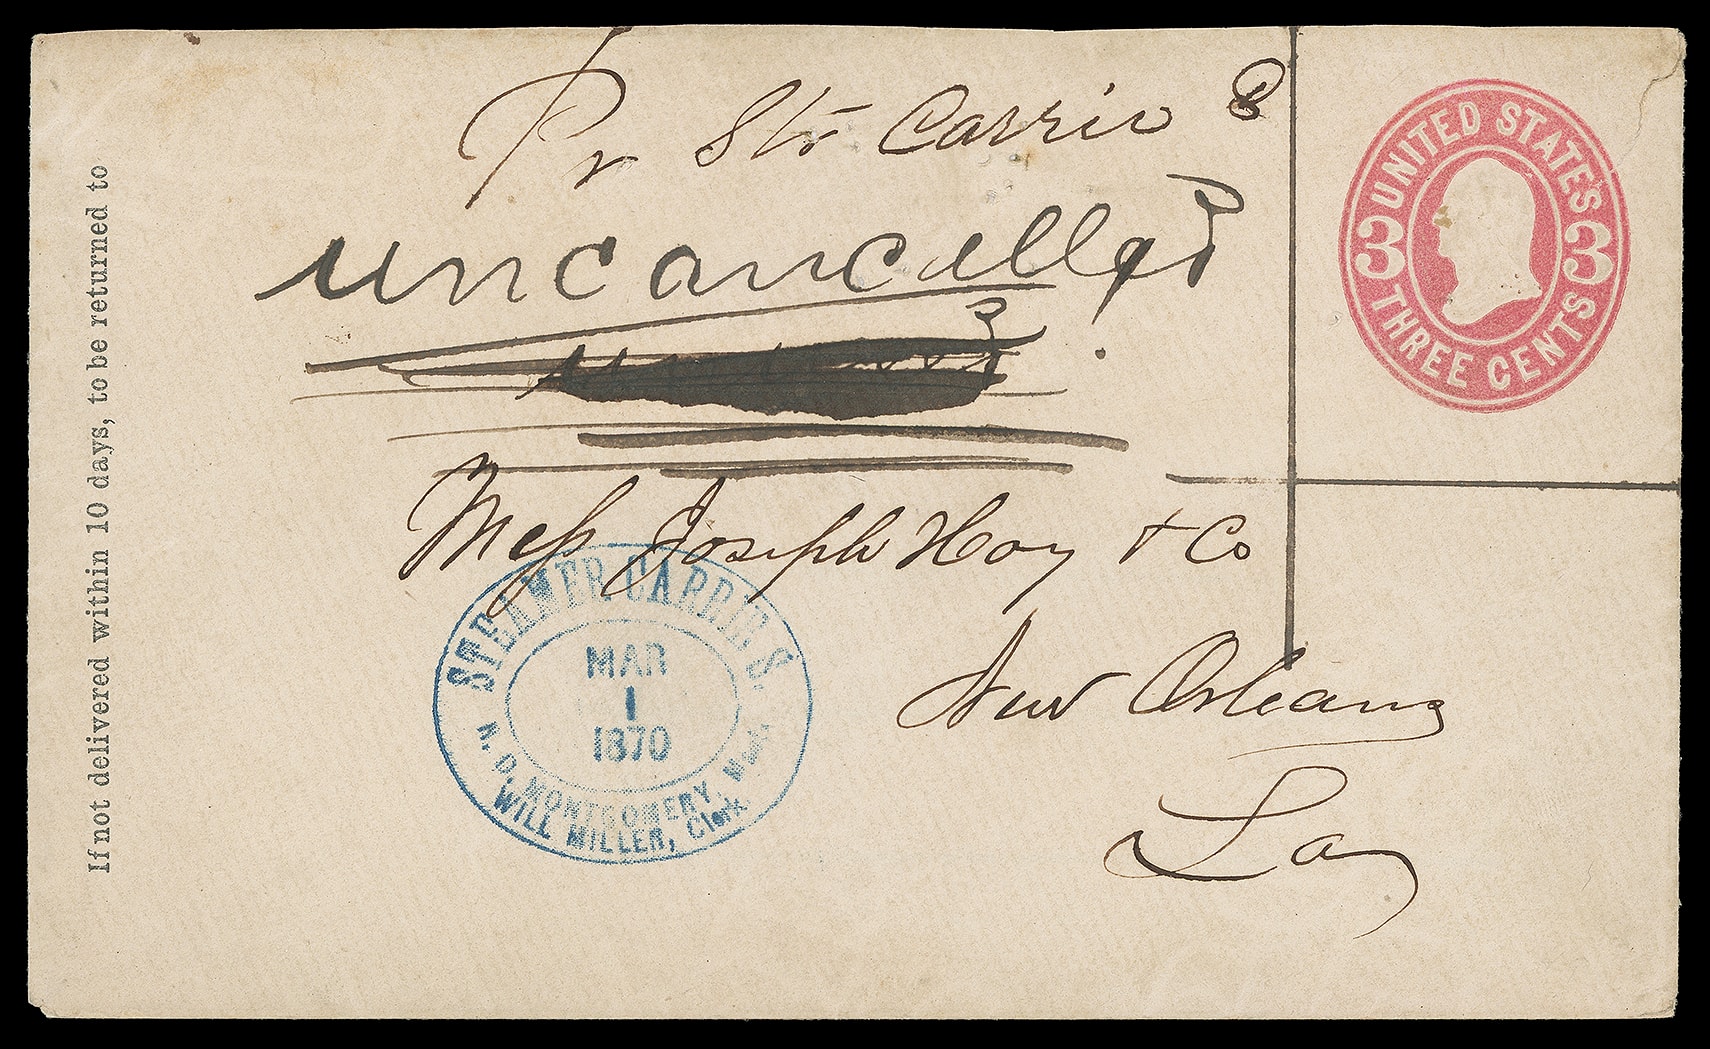 Pr Str Carrie S
uncancelled
3
Mess Joseph Hoy & Co
New Orleans
La
UNITED STATES
3 3
THREE CENTS
STEAMER CARRIE S.
MAR
1
1870
N. D. MONTGOMERY,
WILL MILLER, Clerk
If not delivered within 10 days, to be returned to